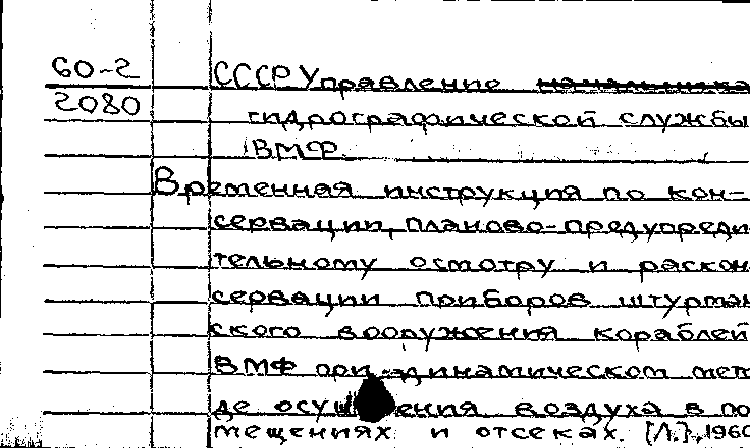 60-2
2080
СССР Управление
гидрографической службы
ВМФ.
Временная инструкция по кон-
сервации, планово-предупреди
тельному осмотру и раскон
сервации приборов штурман
ского вооружения кораблей
ВМФ при динамическом мет
де осушения воздуха в по
мещениях и отсеках. [Л.], 1960